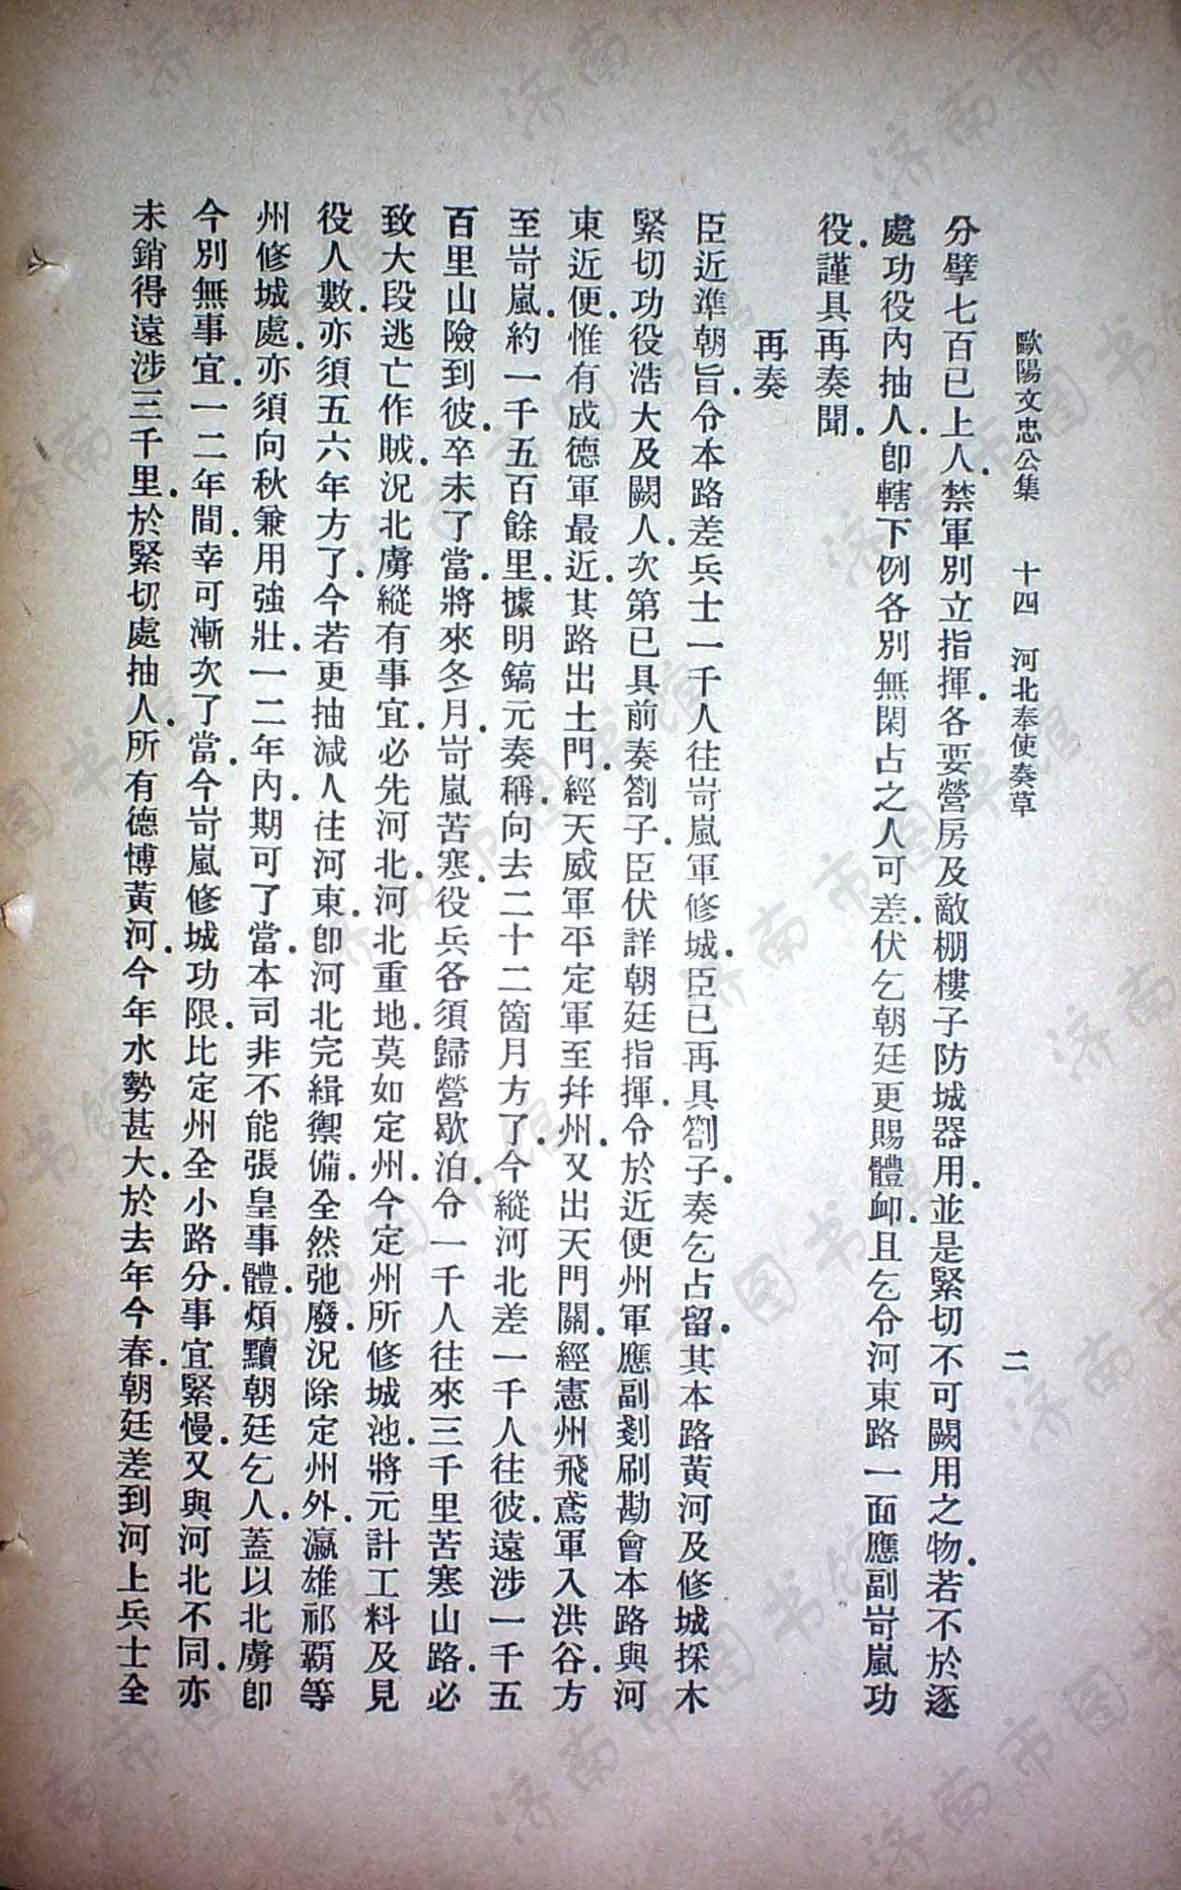 歐陽文忠公集　十四　河北奉使奏草　二
分擘七百已上人禁軍別立指揮各要營房及敵棚樓子防城器用並是緊切不可闕用之物若不於逐
處功役內抽人卽轄下例各別無閑占之人可差伏乞朝廷更賜體卹且乞令河東路一面應副岢嵐功
役謹具再奏聞
再奏
臣近準朝旨令本路差兵士一千人往岢嵐軍修城臣已再具劄子奏乞占留其本路黃河及修城採木
緊切功役浩大及闕人次第已具前奏劄子臣伏詳朝廷指揮令於近便州軍應副剗刷勘會本路與河
東近便惟有成德軍最近其路出土門經天威軍平定軍至幷州又出天門關經憲州飛鳶軍入洪谷方
至岢嵐約一千五百餘里據明鎬元奏稱向去二十二箇月方了今縱河北差一千人往彼遠涉一千五
百里山險到彼卒未了當將來冬月岢嵐苦寒役兵各須歸營歇泊令一千人往來三千里苦寒山路必
致大段逃亡作賊況北虜縱有事宜必先河北河北重地莫如定州今定州所修城池將元計工料及見
役人數亦須五六年方了今若更抽減人往河東卽河北完緝禦備全然弛廢況除定州外瀛雄祁霸等
州修城處亦須向秋兼用強壯一二年內期可了當本司非不能張皇事體煩黷朝廷乞人蓋以北虜卽
今別無事宜一二年間幸可漸次了當今岢嵐修城功限比定州全小路分事宜緊慢又與河北不同亦
未銷得遠涉三千里於緊切處抽人所有德博黃河今年水勢甚大於去年今春朝廷差到河上兵士全
济南市图书馆